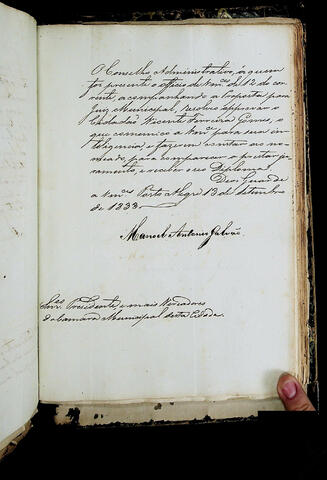 O Conselho Administrativo, á quem
foi presente o officio de Vmces de 12 do cor-
rente, acompanhando a Proposta para
Juiz Municipal, resolveo approvar o
Cidadão Vicente Ferreira Gomes, o
que comunico a Vmces para sua in-
telligencia, e fazerem constar ao no-
meado, para comparecer a prestar ju-
ramento, e receber o seo Diploma.
Deos Guarde
a Vmces Porto Alegre 13 de Setembro
de 1833
Manoel Antonio Galvão
Snres Presidente, e mais Vereadores
da Camara Municipal desta Cidade.